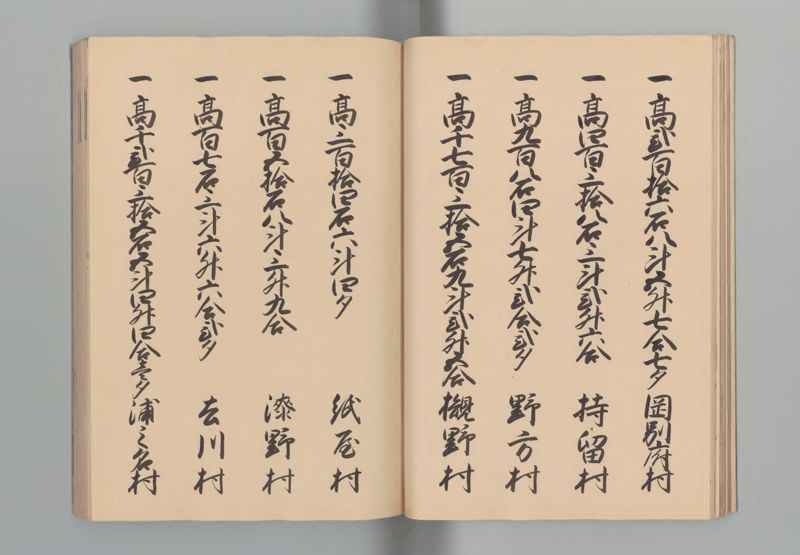 一 高弐百拾六石八斗五升七合七夕 岡別府村
一 高四百三拾八石三斗弐升六合 持留村
一 高九百八石四斗七升弐合弐夕 野方村
一 高千七百三拾五石九斗弐升五合 櫬野村
一 高三百拾四石六斗四夕 紙屋村
一 高百五拾石八斗三升九合 漆野村
一 高百七石三斗六升六合弐夕 去川村
一 高千弐百三拾五石五斗四升四合壱夕 浦之名村